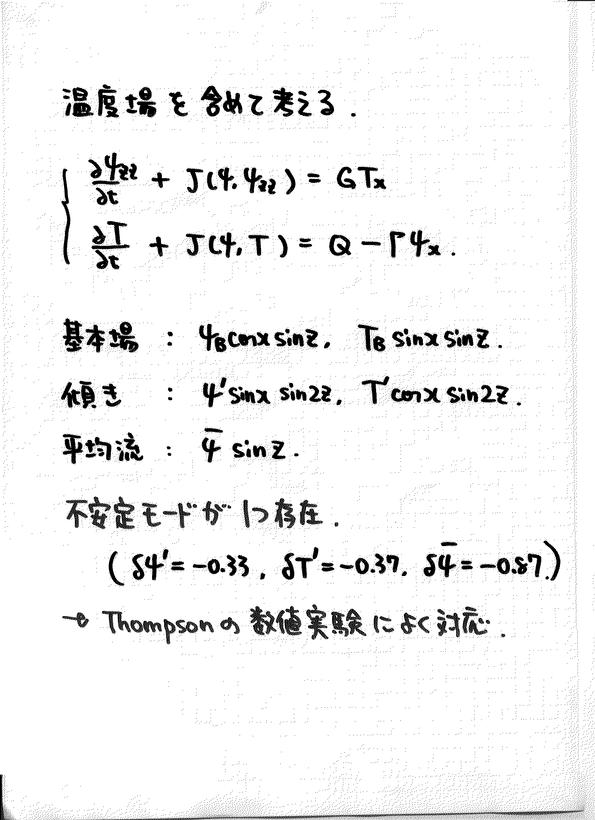 温度場を含めて考える.
∂ψzz/∂t + J(ψ,ψzz) = GTx
∂T/∂t + J(ψ,T) = Q − Γψx.
基本場 : ψB cosx sinz, TB sinx sinz.
傾き : ψ′sinx sin2z, T′cosx sin2z.
平均流 : ψ̄ sinz.
不安定モードが1つ存在.
(δψ′=−0.33, δT′=−0.37, δψ̄=−0.87.)
→ Thompsonの数値実験によく対応.